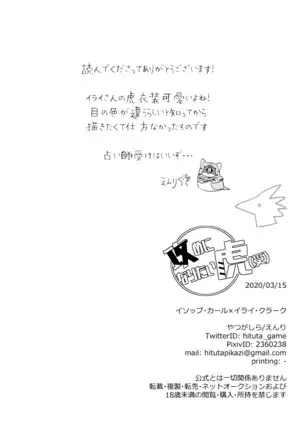 読んでくださってありがとうございます!
イライさんの虎衣装可愛いよね!
目の色が違うらしいと知ってから
描きたくて仕方なかったものです
占い師受けはいいぞ…
えんり
攻めに
なりたい
虎
2020/03/15
イソップ・カール×イライ・クラーク
やつがしら/えんり
TwitterID: hituta_game
PixivID: 2360238
mail: hitutapikazi@gmail.com
printing: -
公式とは一切関係ありません
転載・複製・転売・ネットオークションおよび
18歳未満の閲覧・購入・所持を禁じます